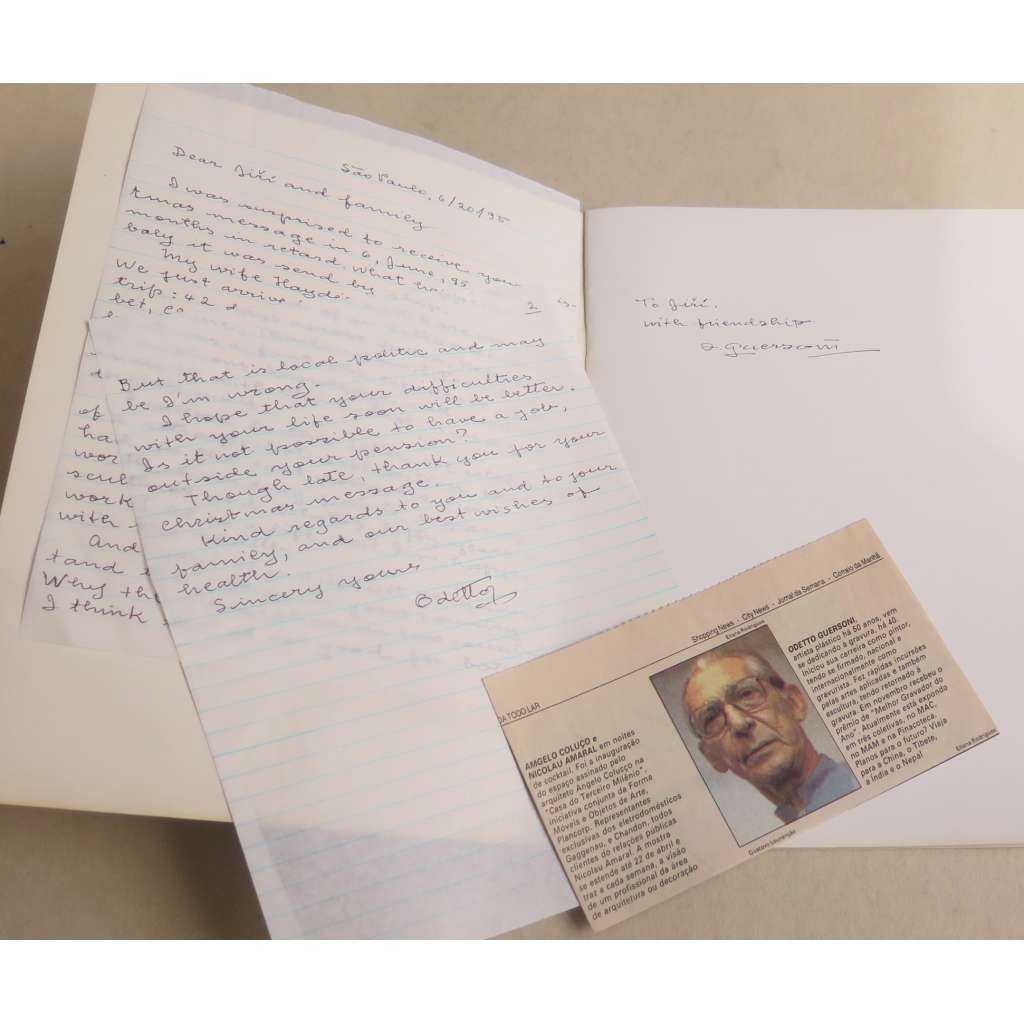 São Paulo, 6/20/95
Dear Jiří and family
I was surprised to receive your
tmas message in 6, June, 95
months in retard. What
baly it was send by
My wife Haydé
We just arrive
trip: 42 d
bet,
of
ha
wor
scul
work
with
And
tand
Why the
I think
2
But that is local politic and may
be I'm wrong.
I hope that your difficulties
with your life soon will be better.
Is it not possible to have a job,
outside your pension?
Though late, thank you for your
christmas message.
Kind regards to you and to your
family, and our best wishes of
health.
Sincery yours
Odetto
To Jiří,
with friendship
O. Guersoni
Shopping News - City News - Jornal da Semana - Correio da Manhã
DA TODO LAR
AMGELO COLUÇO e
NICOLAU AMARAL em noites
de cocktail. Foi a inauguração
do espaço assinado pelo
arquiteto Angelo Colucço na
"Casa do Terceiro Milênio",
iniciativa conjunta da Forma
Móveis e Objetos de Arte,
Plancorp. Representantes
exclusivas dos eletrodomésticos
Gaggenau, e Chandon, todos
clientes do relações públicas
Nicolau Amaral. A mostra
se estende até 22 de abril e
traz a cada semana, a visão
de um profissional da área
de arquitetura ou decoração
Eliana Rodrigues
Gustavo Lourenção
ODETTO GUERSONI,
artista plástico há 50 anos, vem
se dedicando à gravura, há 40.
Iniciou sua carreira como pintor,
tendo se firmado, nacional e
internacionalmente como
gravurista. Fez rápidas incursões
pelas artes aplicadas e também
escultura, tendo retornado à
gravura. Em novembro recebeu o
prêmio de "Melhor Gravador do
Ano". Atualmente está expondo
em três coletivas, no MAC,
no MAM e na Pinacoteca.
Planos para o futuro? Viaja
para a China, o Tibete,
a Índia e o Nepal
Eliana Rodrigues